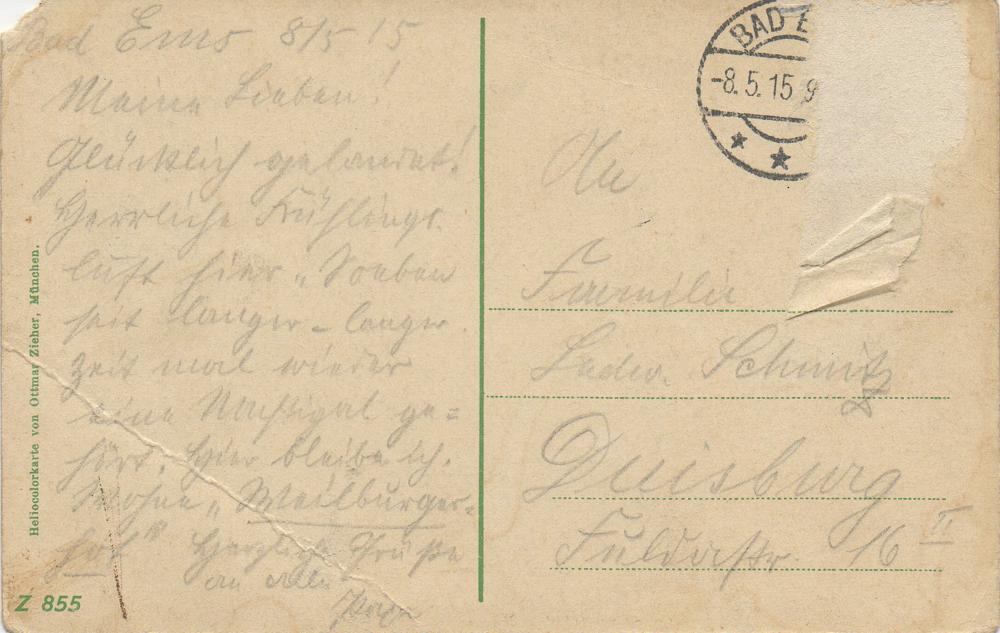 Bad Ems 8/5 15
Meine Lieben!
Glücklich gelandet!
Herrliche Frühlings-
luft hier. Soeben
seit langer-langer
Zeit mal wieder
eine Nachtigal ge=
hört. Hier bleibe ich.
Wohne „Weilburger-
hof" Herzliche Grüße
an alle
Papa
Heliocolorkarte von Ottmar Zieher, München.
Z 855
BAD E
-8.5.15 9
An
Familie
Ludw. Schmitz
Duisburg
Fuldastr. 16 II